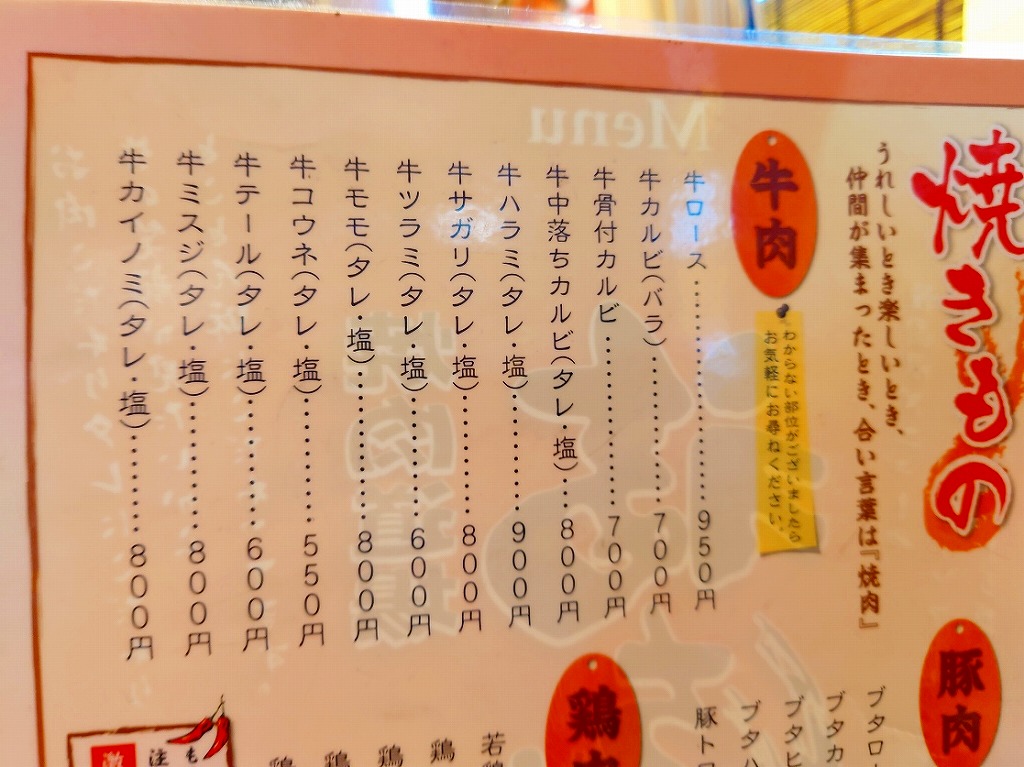 焼きもの
うれしいとき楽しいとき、
仲間が集まったとき、合い言葉は『焼肉』
牛肉
わからない部位がございましたら
お気軽にお尋ねください。
牛ロース………………950円
牛カルビ(バラ)………………700円
牛骨付カルビ………………700円
牛中落ちカルビ(タレ・塩)……800円
牛ハラミ(タレ・塩)…………900円
牛サガリ(タレ・塩)…………800円
牛ツラミ(タレ・塩)…………600円
牛モモ(タレ・塩)……………800円
牛コウネ(タレ・塩)…………550円
牛テール(タレ・塩)…………600円
牛ミスジ(タレ・塩)…………800円
牛カイノミ(タレ・塩)………800円
豚肉
ブタロ
ブタカ
ブタヒ
ブタハ
豚ト
鶏肉
若鶏
鶏
鶏
鶏
鶏
も
注
激
Menu